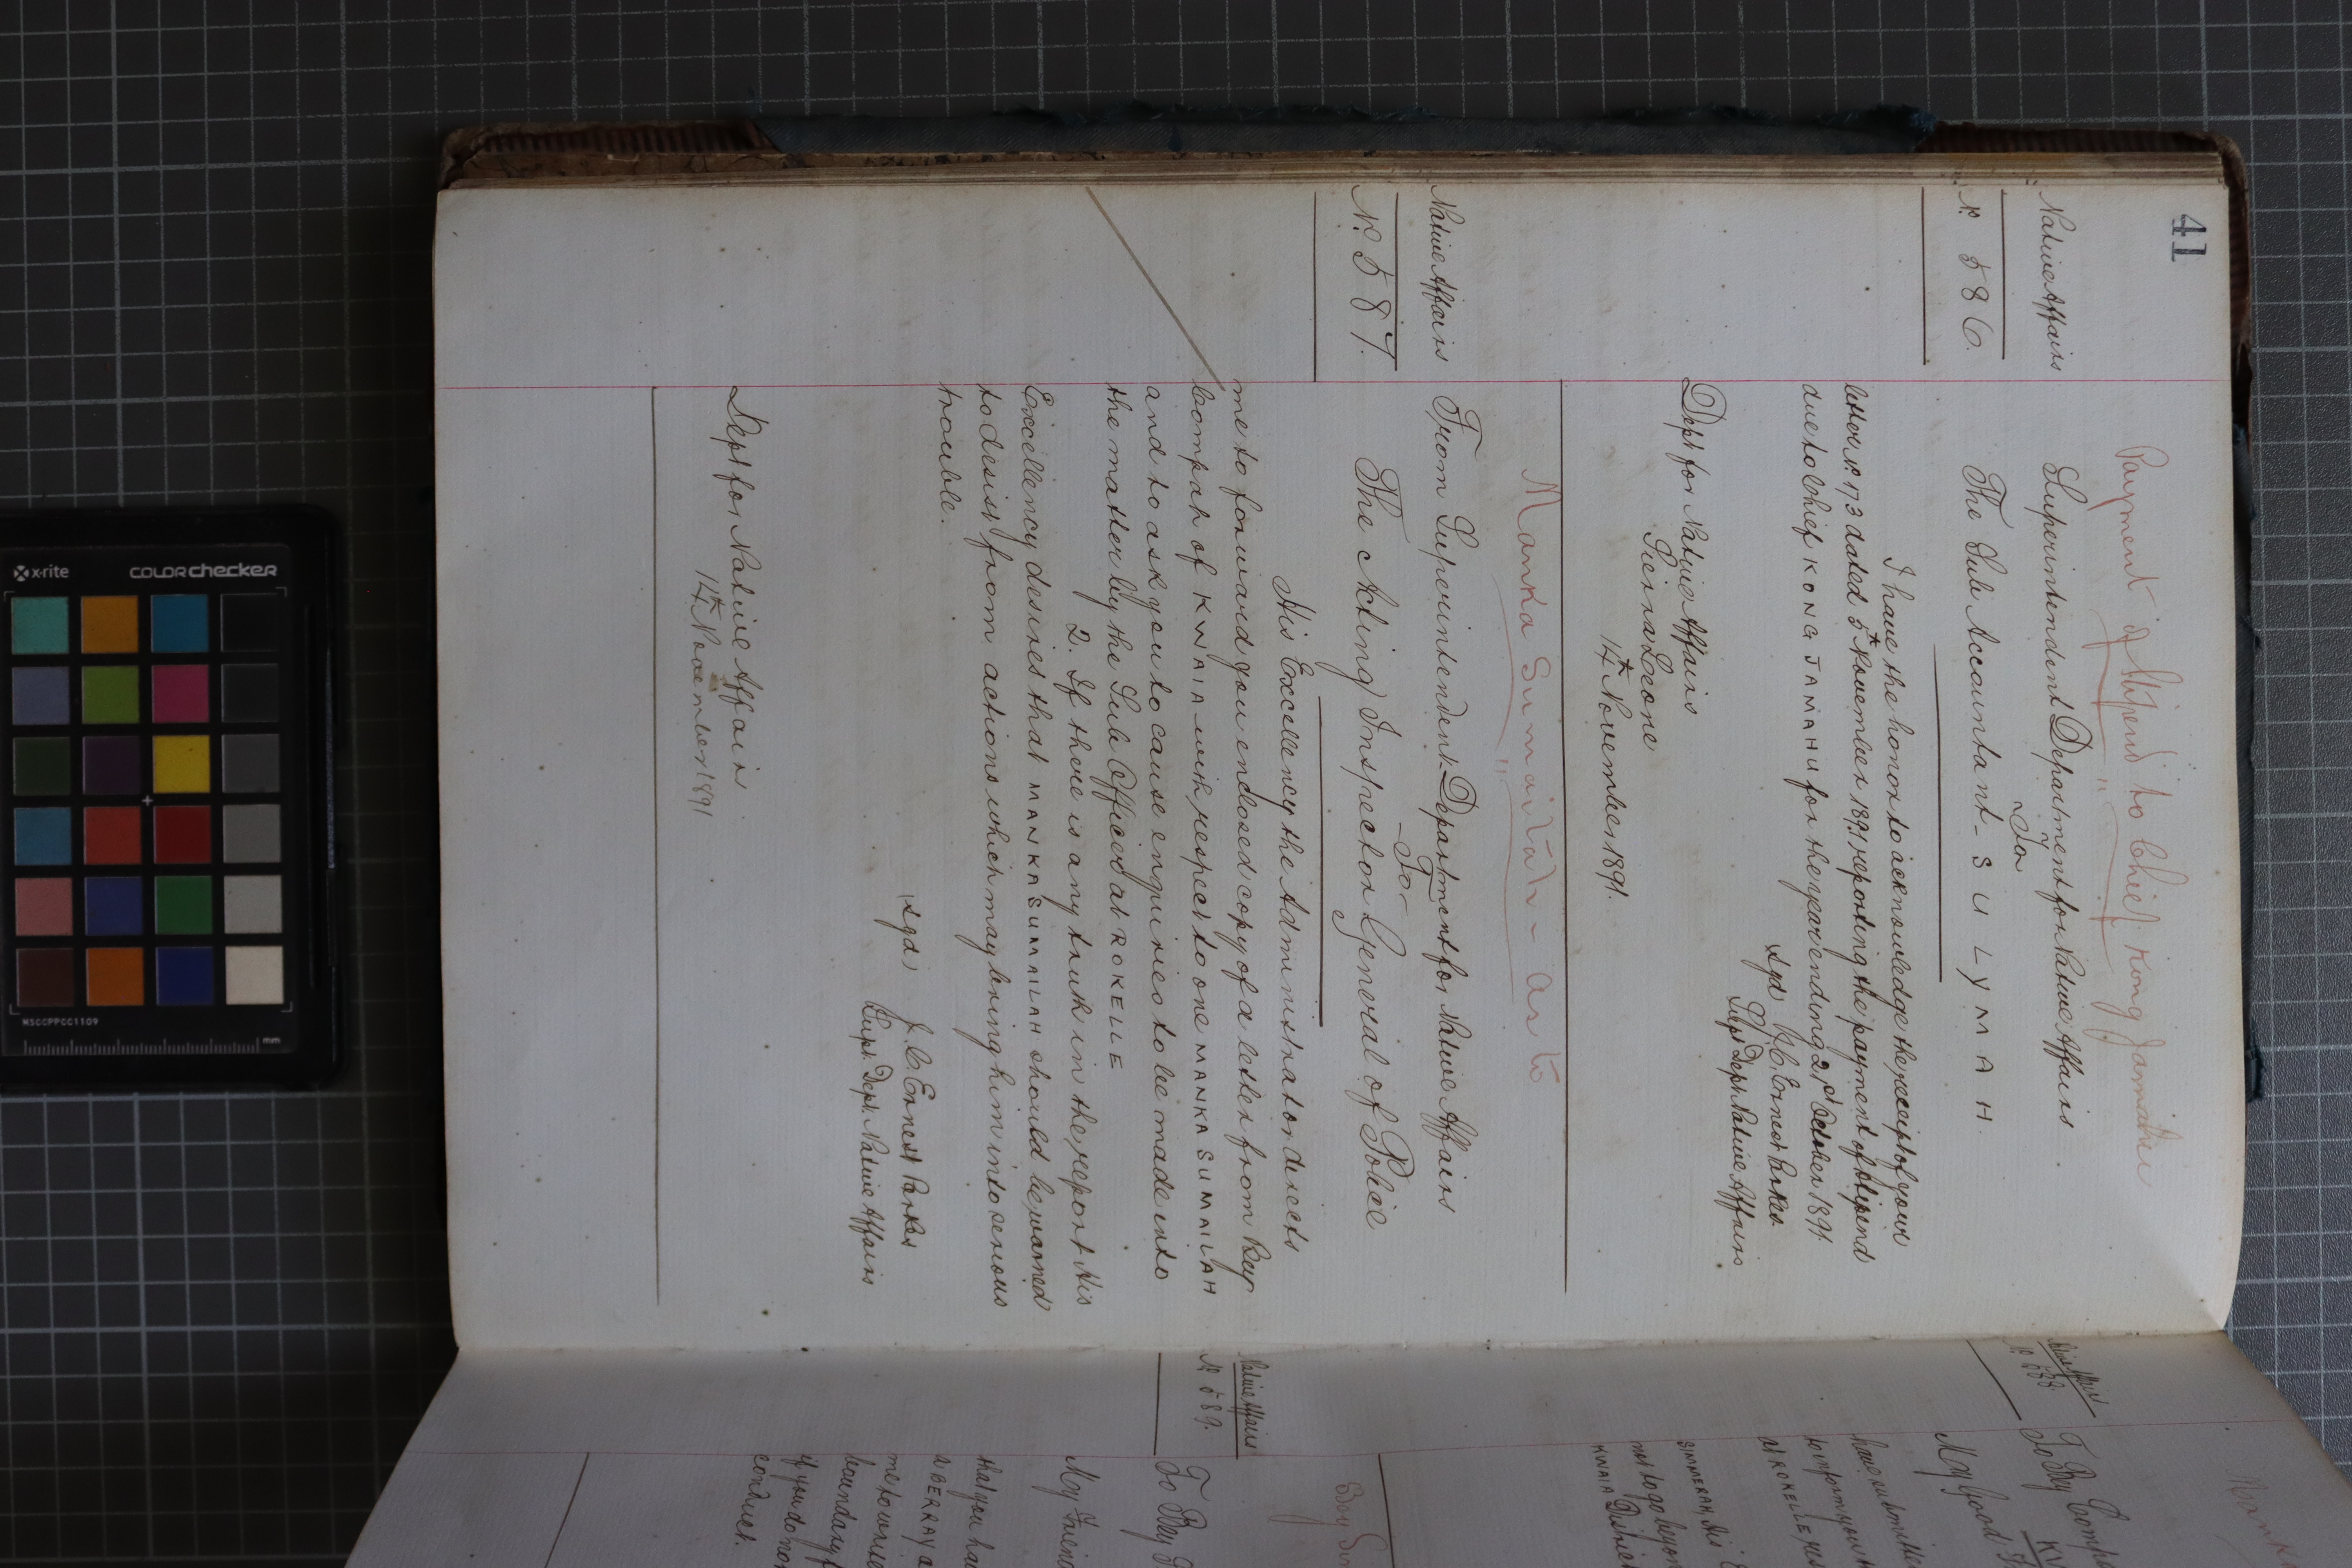 41
Payment of Stipend to Chief Kong Jamahu
Native Affairs
Nº 586.
Superintendent Department for Native Affairs
To
The Sub Accountant - SULYMAH.
I have the honor to acknowledge the receipt of your
letter Nº 173 dated 5th November 1891 reporting the payment of stipend
due to Chief KONG JAMAHU for the year ending 21st October 1891.
sgd J. C. Ernest Parkes
Supt Dept Native Affairs
Dept for Native Affairs
Sierra Leone
14th November 1891.
Manka Sumailah - as to
Native Affairs
Nº 587.
From Superintendent Department for Native Affairs
To
The Acting Inspector General of Police
His Excellency the Administrator directs
me to forward you enclosed copy of a letter from Bey
Compah of KWAIA with respect to one MANKA SUMAILAH
and to ask you to cause enquiries to be made into
the matter by the Sub Officer at ROKELLE
2. If there is any truth in the report His
Excellency desires that MANKA SUMAILAH should be warned
to desist from actions which may bring him into serious
trouble.
(sgd) J. C. Ernest Parkes
Supt. Dept. Native Affairs
Dept for Native Affairs
14th November 1891
Native Affairs
Nº 588
To Bey Comp
My Good
at ROKELLE
SIMMERAH, His
not to go beyon
KWAIA District
Boy Sim
Native Affairs
Nº 589.
To Bey
My Friend
that you ha
boundary
if you do no
conduct.